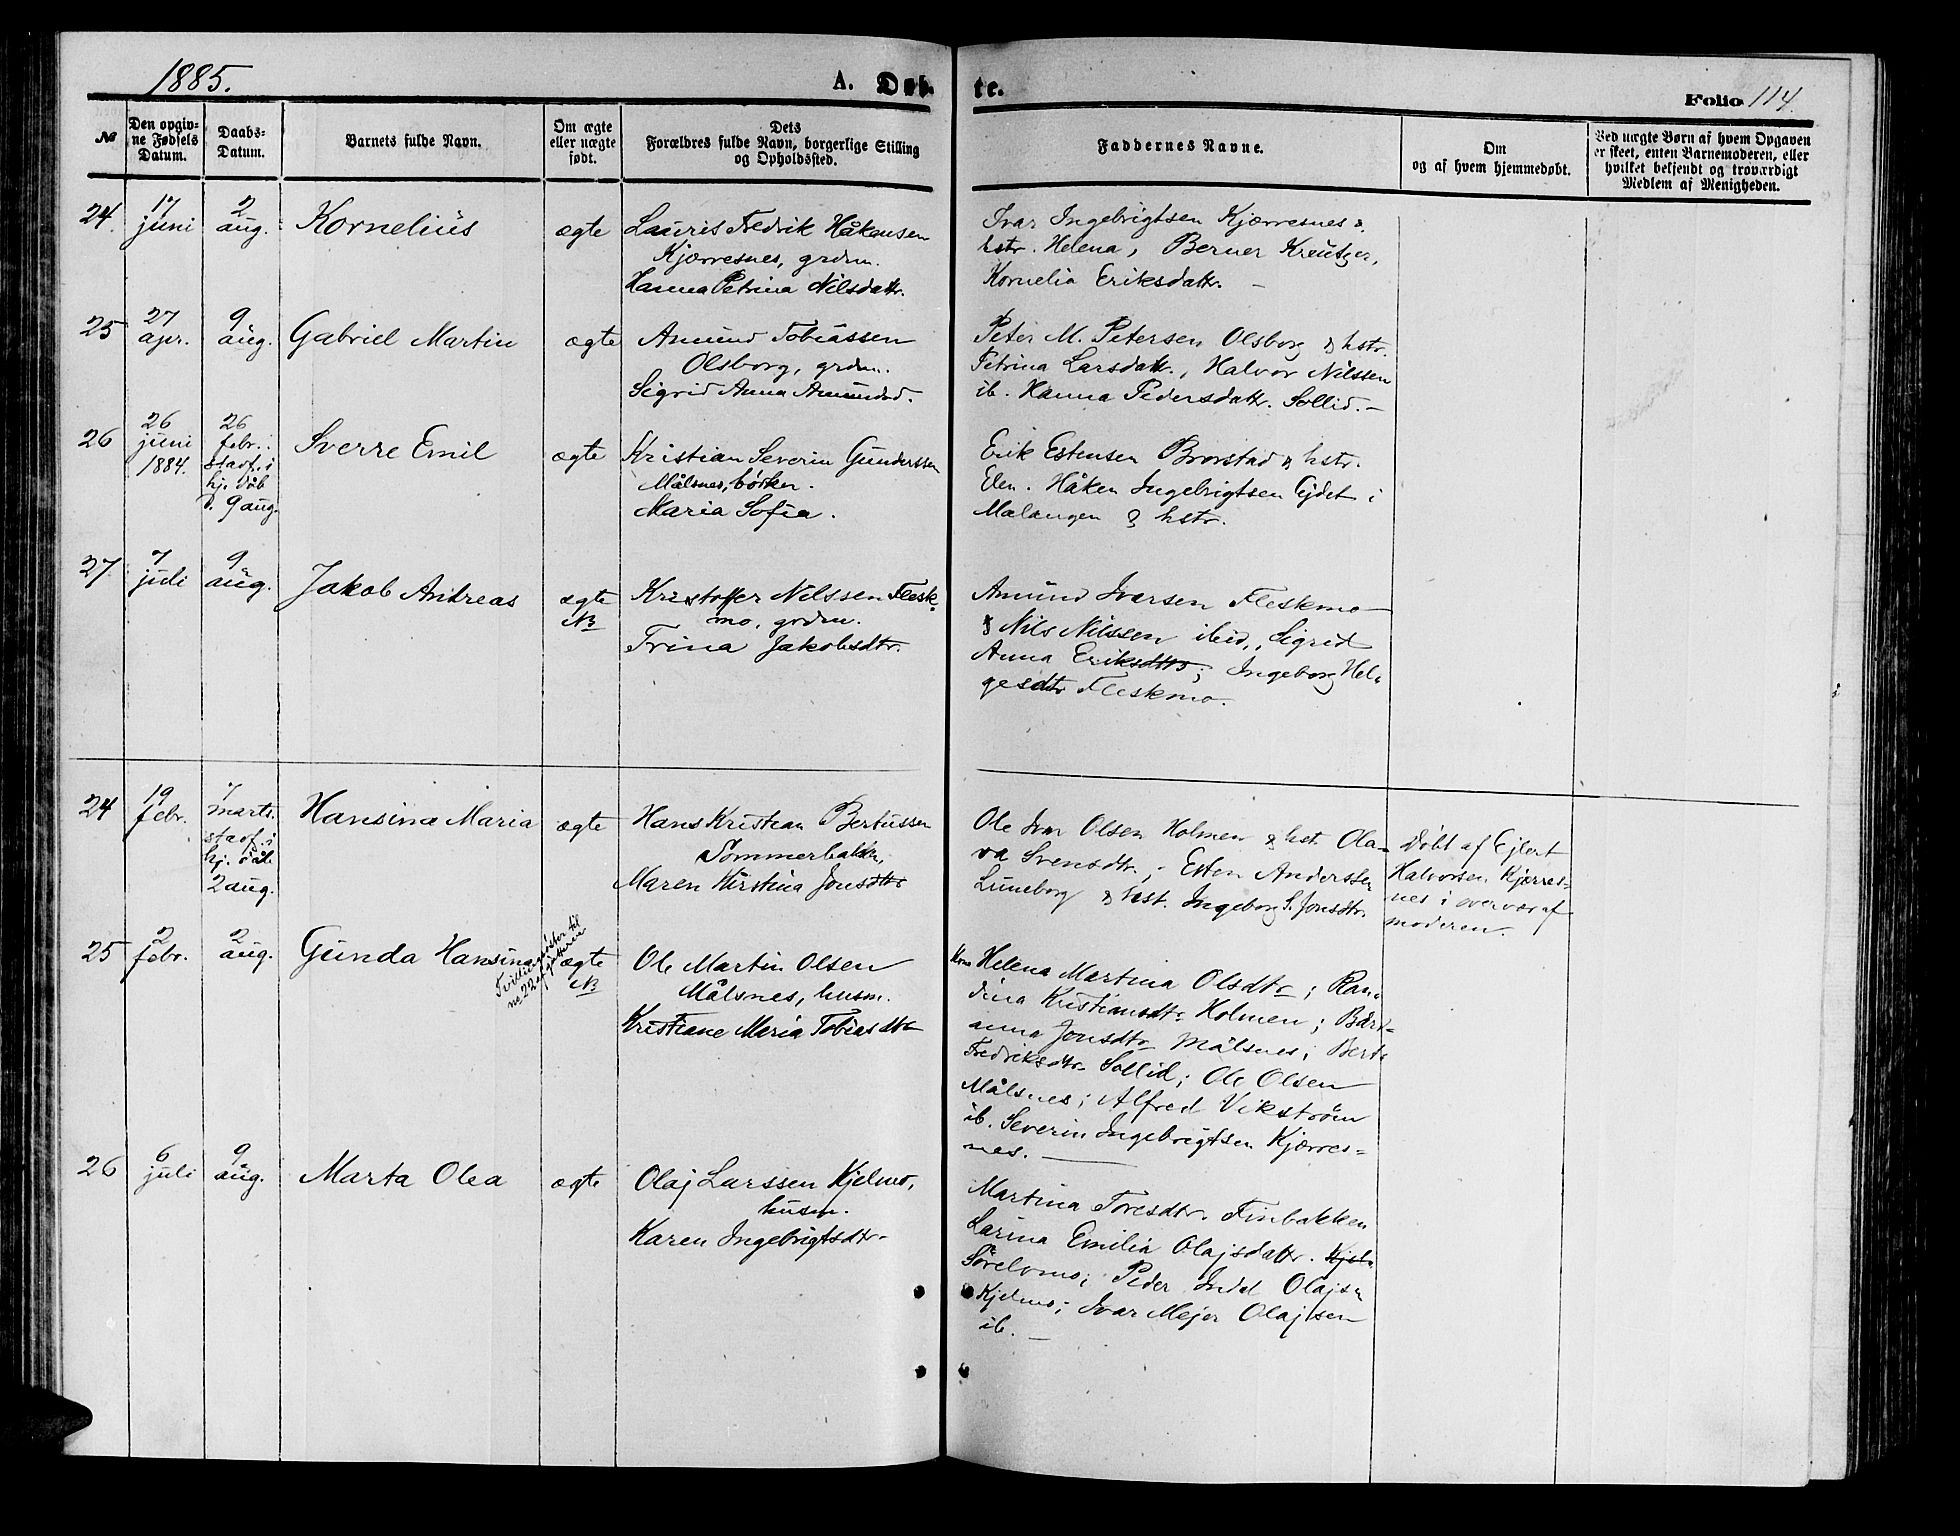 1885.
A. Døb-
te.
Folio 114.
№
Den opgiv-
ne Fødsels
Datum.
Daabs-
Datum.
Barnets fulde Navn.
Om ægte
eller uægte
født.
Dets
Forældres fulde Navn, borgerlige Stilling
og Opholdssted.
Faddernes Navne.
Om
og af hvem hjemmedøbt.
Ved uægte Børn af hvem Opgaven
er skeet, enten Barnemoderen, eller
hvilket beksendt og troværdigt
Medlem af Menigheden.
24.
17
juni
2
aug.
Kornelius
ægte
Lauris Fredrik Håkensen
Kjærresnes, grdm.
Hanna Petrina Nilsdattr.
Ivar Ingebrigtsen Kjærresnes &
hstr. Helena, Berner Kreutzer,
Kornelia Eriksdattr. —
25
27
apr.
9
aug.
Gabriel Martin
ægte
Amund Tobiassen
Olsborg, grdm.
Sigrid Anna Amundsd.
Peter M. Petersen Olsborg & hstr.
Petrina Larsdattr., Halvor Nilssen
ib. Hanna Pedersdattr. Sollid. —
26
26
juni
1884.
26
febr.
stadf. i
hj. døb
d. 9 aug.
Sverre Emil
ægte
Kristian Severin Gunderssen
Målsnes, bødker.
Maria Sofia.
Erik Estensen Brorstad & hstr.
Elen. Håken Ingebrigtsen Ejdet i
Malangen & hstr.
27
7
juli
9
aug.
Jakob Andreas
ægte
NB
Kristoffer Nilssen Flesk-
mo, grdm.
Trina Jakobsdtr.
Amund Ivarsen Fleskmo
& Nils Nilssen ibid., Sigrid
Anna Eriksdtr; Ingeborg Hel-
gesdtr Fleskmo.
24
19
febr.
7
marts.
stadf. i
hj. døb
2 aug.
Hansine Maria
ægte
Hans Kristian Bertussen
Sommerbakken,
Maren Kirstina Jonsdtr
Ole Ivar Olsen Holmen & hst. Ola-
va Svensdtr, - Esten Anderssen
Luneborg & hst. Ingeborg S. Jonsdtr.
Døbt af Ejlert
Halvorsen Kjærres-
nes i overvær af
moderen.
25
2
febr.
2
aug.
Gunda Hansina
Tvillingsøster til
ne 22
ægte
NB
Ole Martin Olsen
Målsnes, husm.
Kristiane Maria Tobiasdtr
Kone Helena Martina Olsdtr; Ran-
dina Kristiansdtr Holmen; Bård-
anna Jonsdtr Målsnes; Berte
Fredriksdtr. Sollid; Ole Olsen
Målsnes; Alfred Vikström
ib. Severin Ingebrigtsen Kjærres-
nes. —
26
6
juli
9
aug.
Marta Olea
ægte
Olaj Larssen Kjelmo,
husm.
Karen Ingebrigtsdtr
Martina Toresdtr. Finbakken
Larina Emilia Olajsdattr. Kjel-
Sørelvmo; Peder Olajsen
Kjelmo; Ivar Mejer Olajsen
ib. —